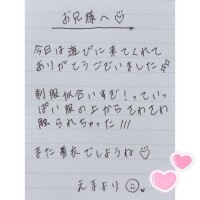 お兄様へ♡
今日は遊びに来てくれて
ありがとうございました
制服似合いすぎ!っていっ
ぱい服の上からさわさわ
触られちゃった!!!
また着衣でしようね♡
えまより